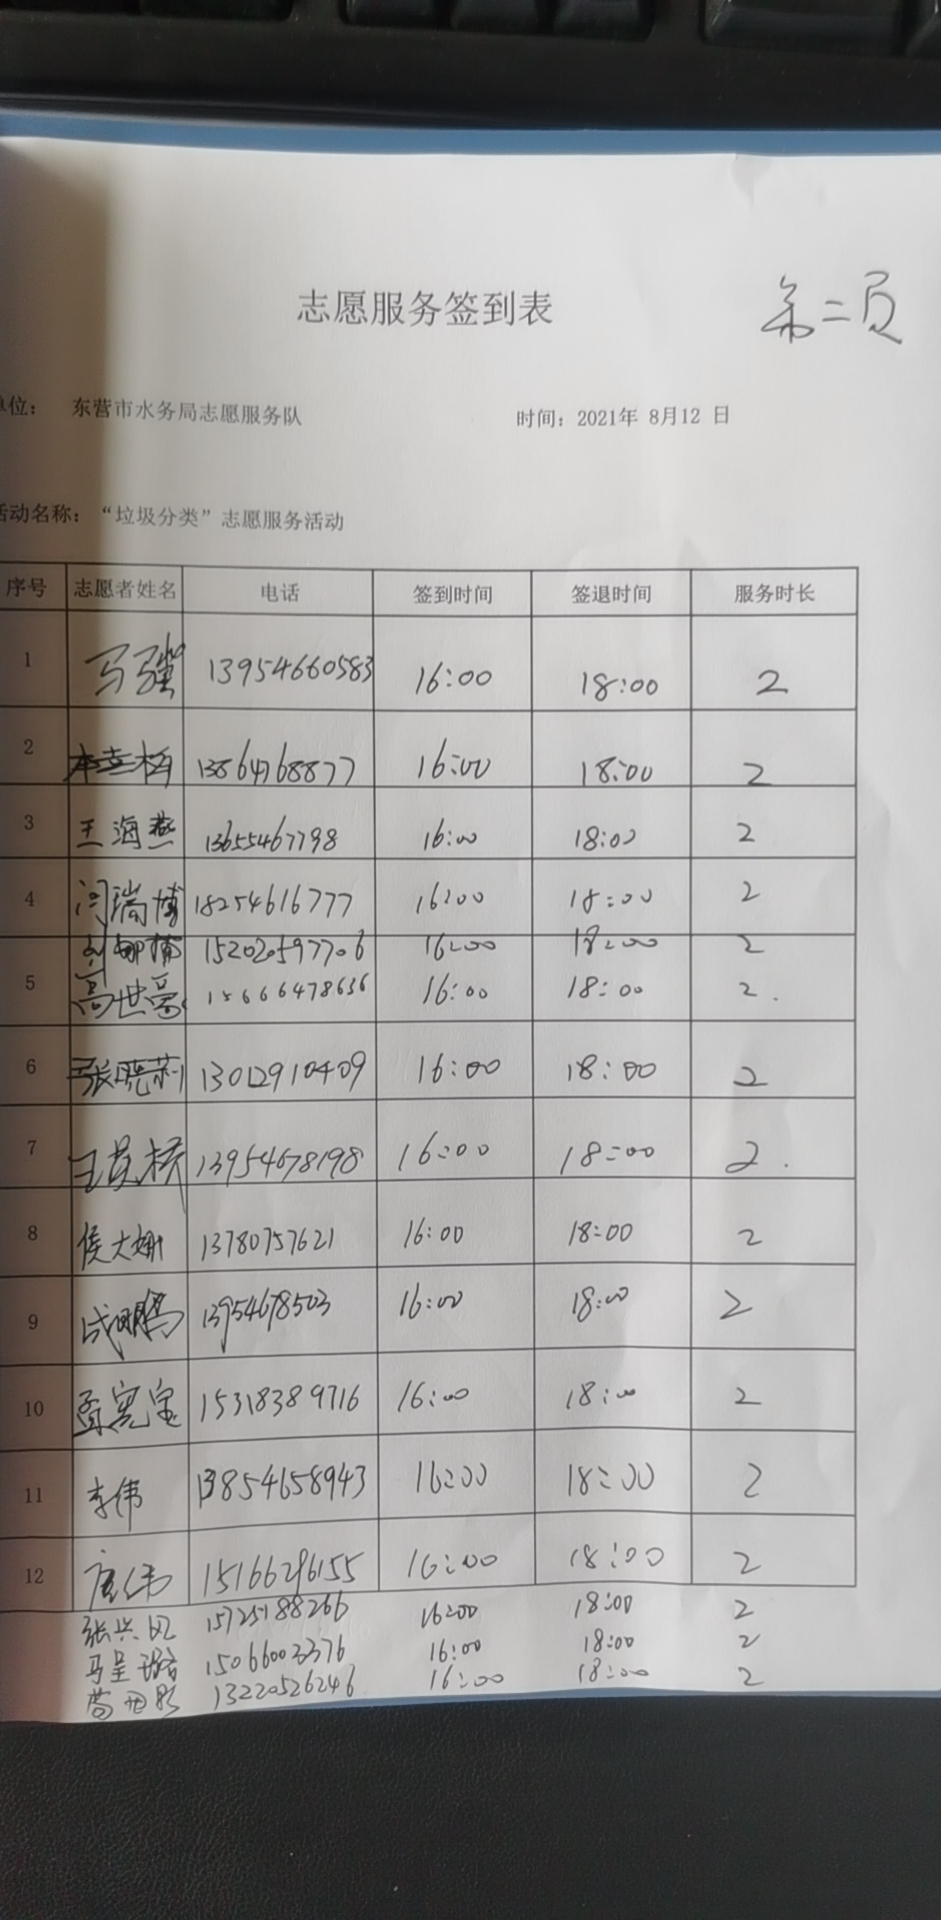 志愿服务签到表
第二页
单位: 东营市水务局志愿服务队 时间: 2021年 8月12 日
活动名称: “垃圾分类”志愿服务活动
序号 志愿者姓名 电话 签到时间 签退时间 服务时长
1 马骥 13954660583 16:00 18:00 2
2 13864768877 16:00 18:00 2
3 王海燕 13655467798 16:00 18:00 2
4 闫瑞博 18254616777 16:00 18:00 2
15202597706 16:00 18:00 2
5 高世豪 15666478636 16:00 18:00 2.
6 张晓莉 13012910409 16:00 18:00 2
7 13954678198 16:00 18:00 2.
8 侯大姗 13780757621 16:00 18:00 2
9 成明腾 13954678503 16:00 18:00 2
10 孟宪宝 15318389716 16:00 18:00 2
11 李伟 13854658943 16:00 18:00 2
12 唐伟 15166296155 16:00 18:00 2
张兴 15725188266 16:00 18:00 2
马呈璐 15066003376 16:00 18:00 2
13220526246 16:00 18:00 2